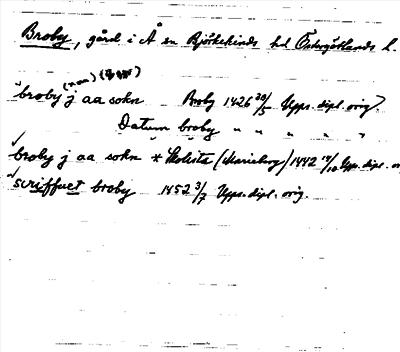 Broby, gård i Å sn Björkekinds hd Östergötlands l.
"broby j aa sokn Broby 1426 20/5 Upps. dipl. orig.
Datum broby " " " " "
"broby j aa sokn * (Marieborg) 1442 /10 Upps. dipl. or
"scriffuet broby 1452 3/7 Upps. dipl. orig.